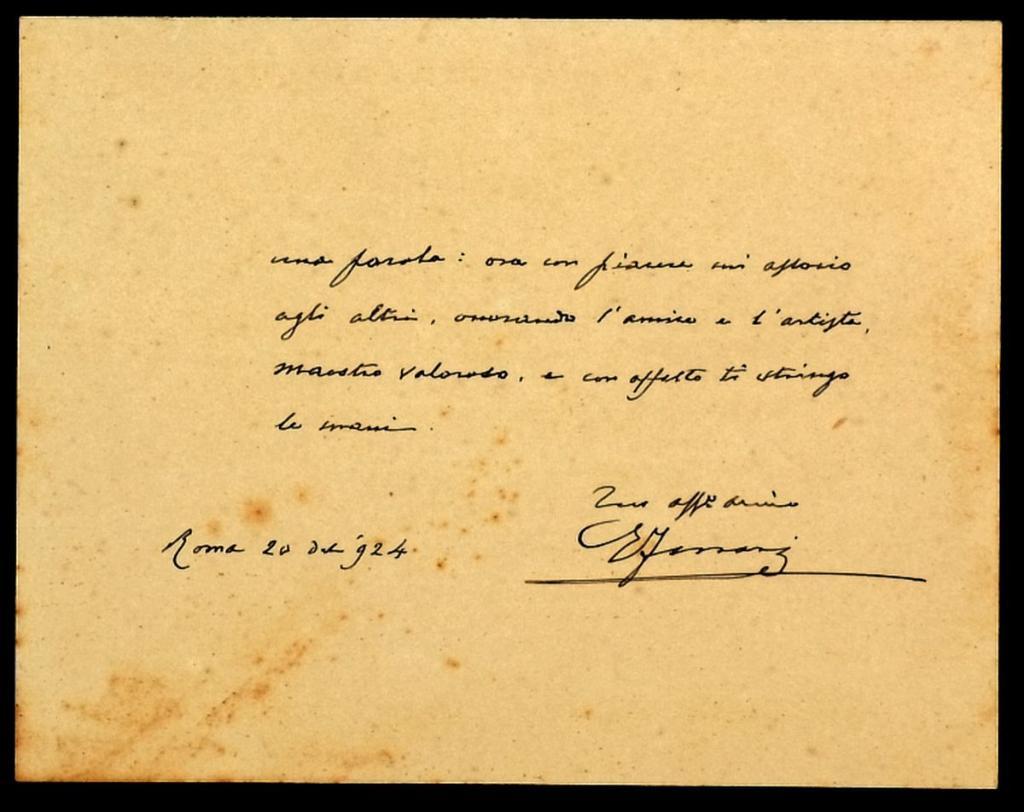 una parola: ora con piacere mi associo
agli altri, onorando l'amico e l'artista,
maestro valoroso, e con affetto ti stringo
le mani.
Tuo aff.º amico
Roma 20 '924
EFerrari